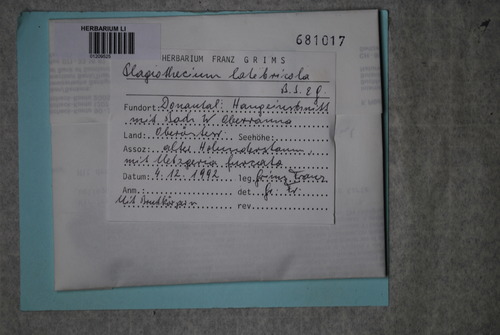 HERBARIUM LI
681017
HERBARIUM FRANZ GRIMS
Plagiothecium latebricola
B.S. e g.
Fundort: Donautal: Hangeinschnitt
mit Bach W Oberranna
Land: Oberösterr. Seehöhe:
Assoz: alter Holunderstamm,
mit Metzgeria furcata
Datum: 4.12.1992 leg. Grims Franz
Anm.: det. Gr. Fr.
Mit Brutkörpern rev.